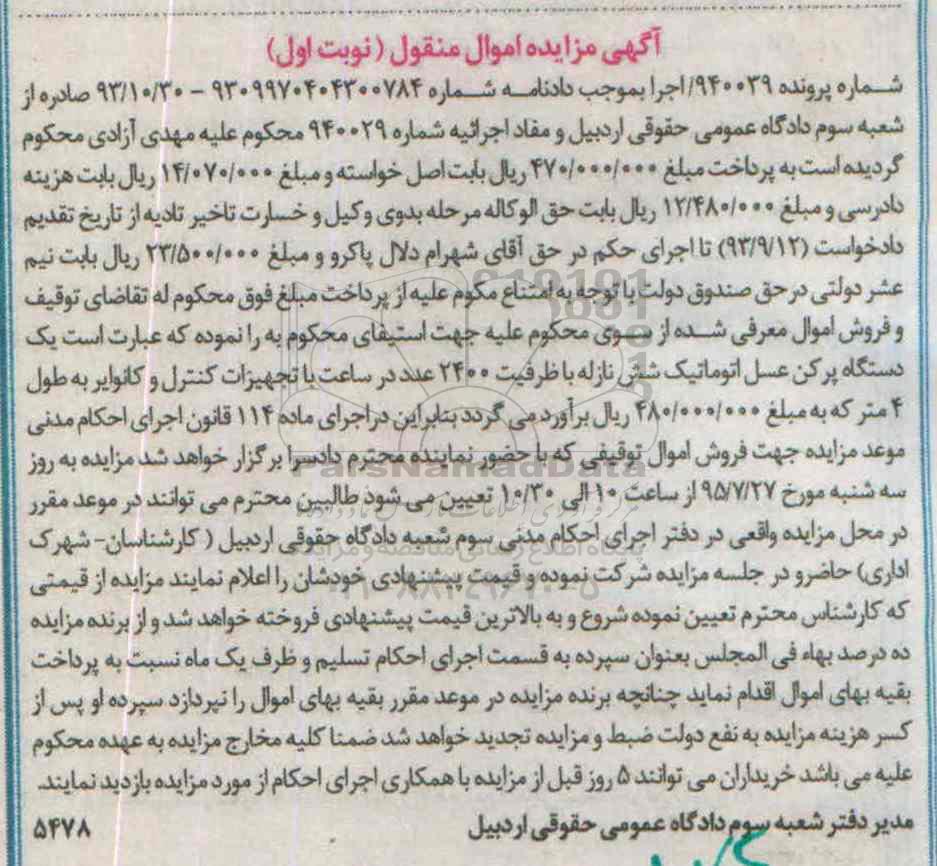 آگهی مزایده اموال منقول (نوبت اول)
شماره پرونده ۹۴۰۰۳۹/ اجرا بموجب دادنامه شماره ۹۳۰۹۹۷۰۴۰۴۳۰۰۷۸۴ – ۹۳/۱۰/۳۰ صادره از
شعبه سوم دادگاه عمومی حقوقی اردبیل و مفاد اجرائیه شماره ۹۴۰۰۲۹ محکوم علیه مهدی آزادی محکوم
گردیده است به پرداخت مبلغ ۴۷۰/۰۰۰/۰۰۰ ریال بابت اصل خواسته و مبلغ ۱۴/۰۷۰/۰۰۰ ریال بابت هزینه
دادرسی و مبلغ ۱۲/۴۸۰/۰۰۰ ریال بابت حق الوکاله مرحله بدوی وکیل و خسارت تاخیر تادیه از تاریخ تقدیم
دادخواست (۹۳/۹/۱۲) تا اجرای حکم در حق آقای شهرام دلال پاکرو و مبلغ ۲۳/۵۰۰/۰۰۰ ریال بابت نیم
عشر دولتی در حق صندوق دولت با توجه به امتناع مکوم علیه از پرداخت مبلغ فوق محکوم له تقاضای توقیف
و فروش اموال معرفی شده از سوی محکوم علیه جهت استیفای محکوم به را نموده که عبارت است یک
دستگاه پرکن عسل اتوماتیک شش نازله با ظرفیت ۲۴۰۰ عدد در ساعت با تجهیزات کنترل و کانوایر به طول
۴ متر که به مبلغ ۴۸۰/۰۰۰/۰۰۰ ریال برآورد می گردد بنابراین در اجرای ماده ۱۱۴ قانون اجرای احکام مدنی
موعد مزایده جهت فروش اموال توقیفی که با حضور نماینده محترم دادسرا برگزار خواهد شد مزایده به روز
سه شنبه مورخ ۹۵/۷/۲۷ از ساعت ۱۰ الی ۱۰/۳۰ تعیین می شود طالبین محترم می توانند در موعد مقرر
در محل مزایده واقعی در دفتر اجرای احکام مدنی سوم شعبه دادگاه حقوقی اردبیل (کارشناسان- شهرک
اداری) حاضرو در جلسه مزایده شرکت نموده و قیمت پیشنهادی خودشان را اعلام نمایند مزایده از قیمتی
که کارشناس محترم تعیین نموده شروع و به بالاترین قیمت پیشنهادی فروخته خواهد شد و از برنده مزایده
ده درصد بهاء فی المجلس بعنوان سپرده به قسمت اجرای احکام تسلیم و ظرف یک ماه نسبت به پرداخت
بقیه بهای اموال اقدام نماید چنانچه برنده مزایده در موعد مقرر بقیه بهای اموال را نپردازد سپرده او پس از
کسر هزینه مزایده به نفع دولت ضبط و مزایده تجدید خواهد شد ضمنا کلیه مخارج مزایده به عهده محکوم
علیه می باشد خریداران می توانند ۵ روز قبل از مزایده با همکاری اجرای احکام از مورد مزایده بازدید نمایند.
مدیر دفتر شعبه سوم دادگاه عمومی حقوقی اردبیل ۵۴۷۸
ParsNamadData